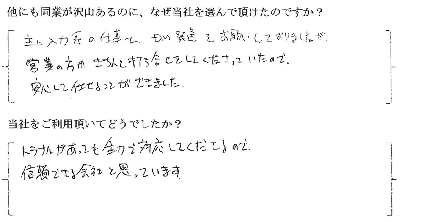 他にも同業が沢山あるのに、なぜ当社を選んで頂けたのですか？
主に入力系の仕事と、 発送をお願いしておりましたが、
営業の方がきちんと打ち合せをしてくださっていたので、
安心して任せることができました。
当社をご利用頂いてどうでしたか？
トラブルがあっても全力で対応してくださるので、
信頼できる会社と思っています。